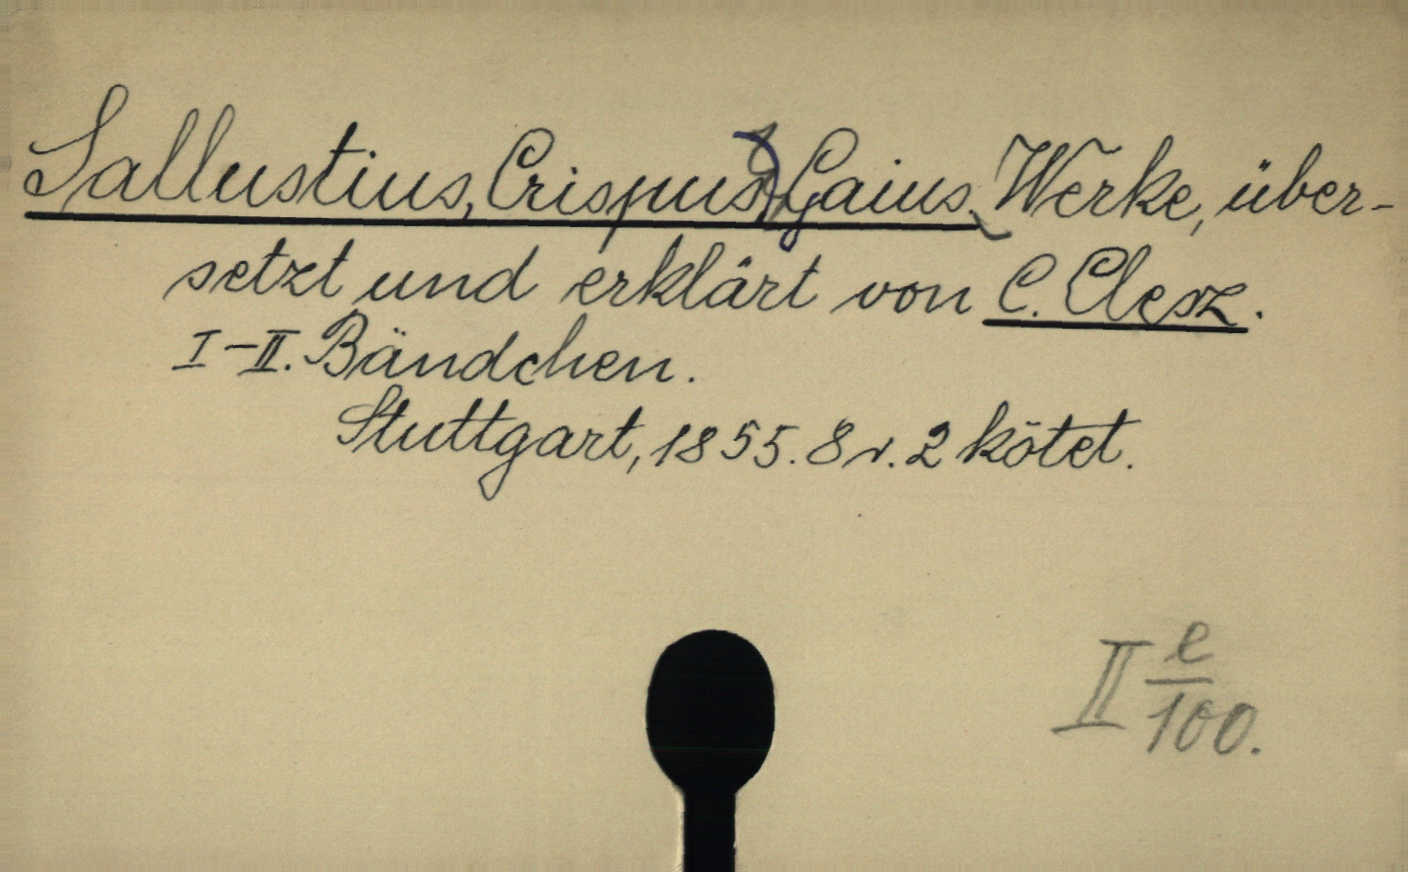 Sallustius, Crispus, Gaius, Werke, über-
setzt und erklärt von C. Clesz.
I-II. Bändchen.
Stuttgart, 1855. 8r. 2 kötet.
II e/100.